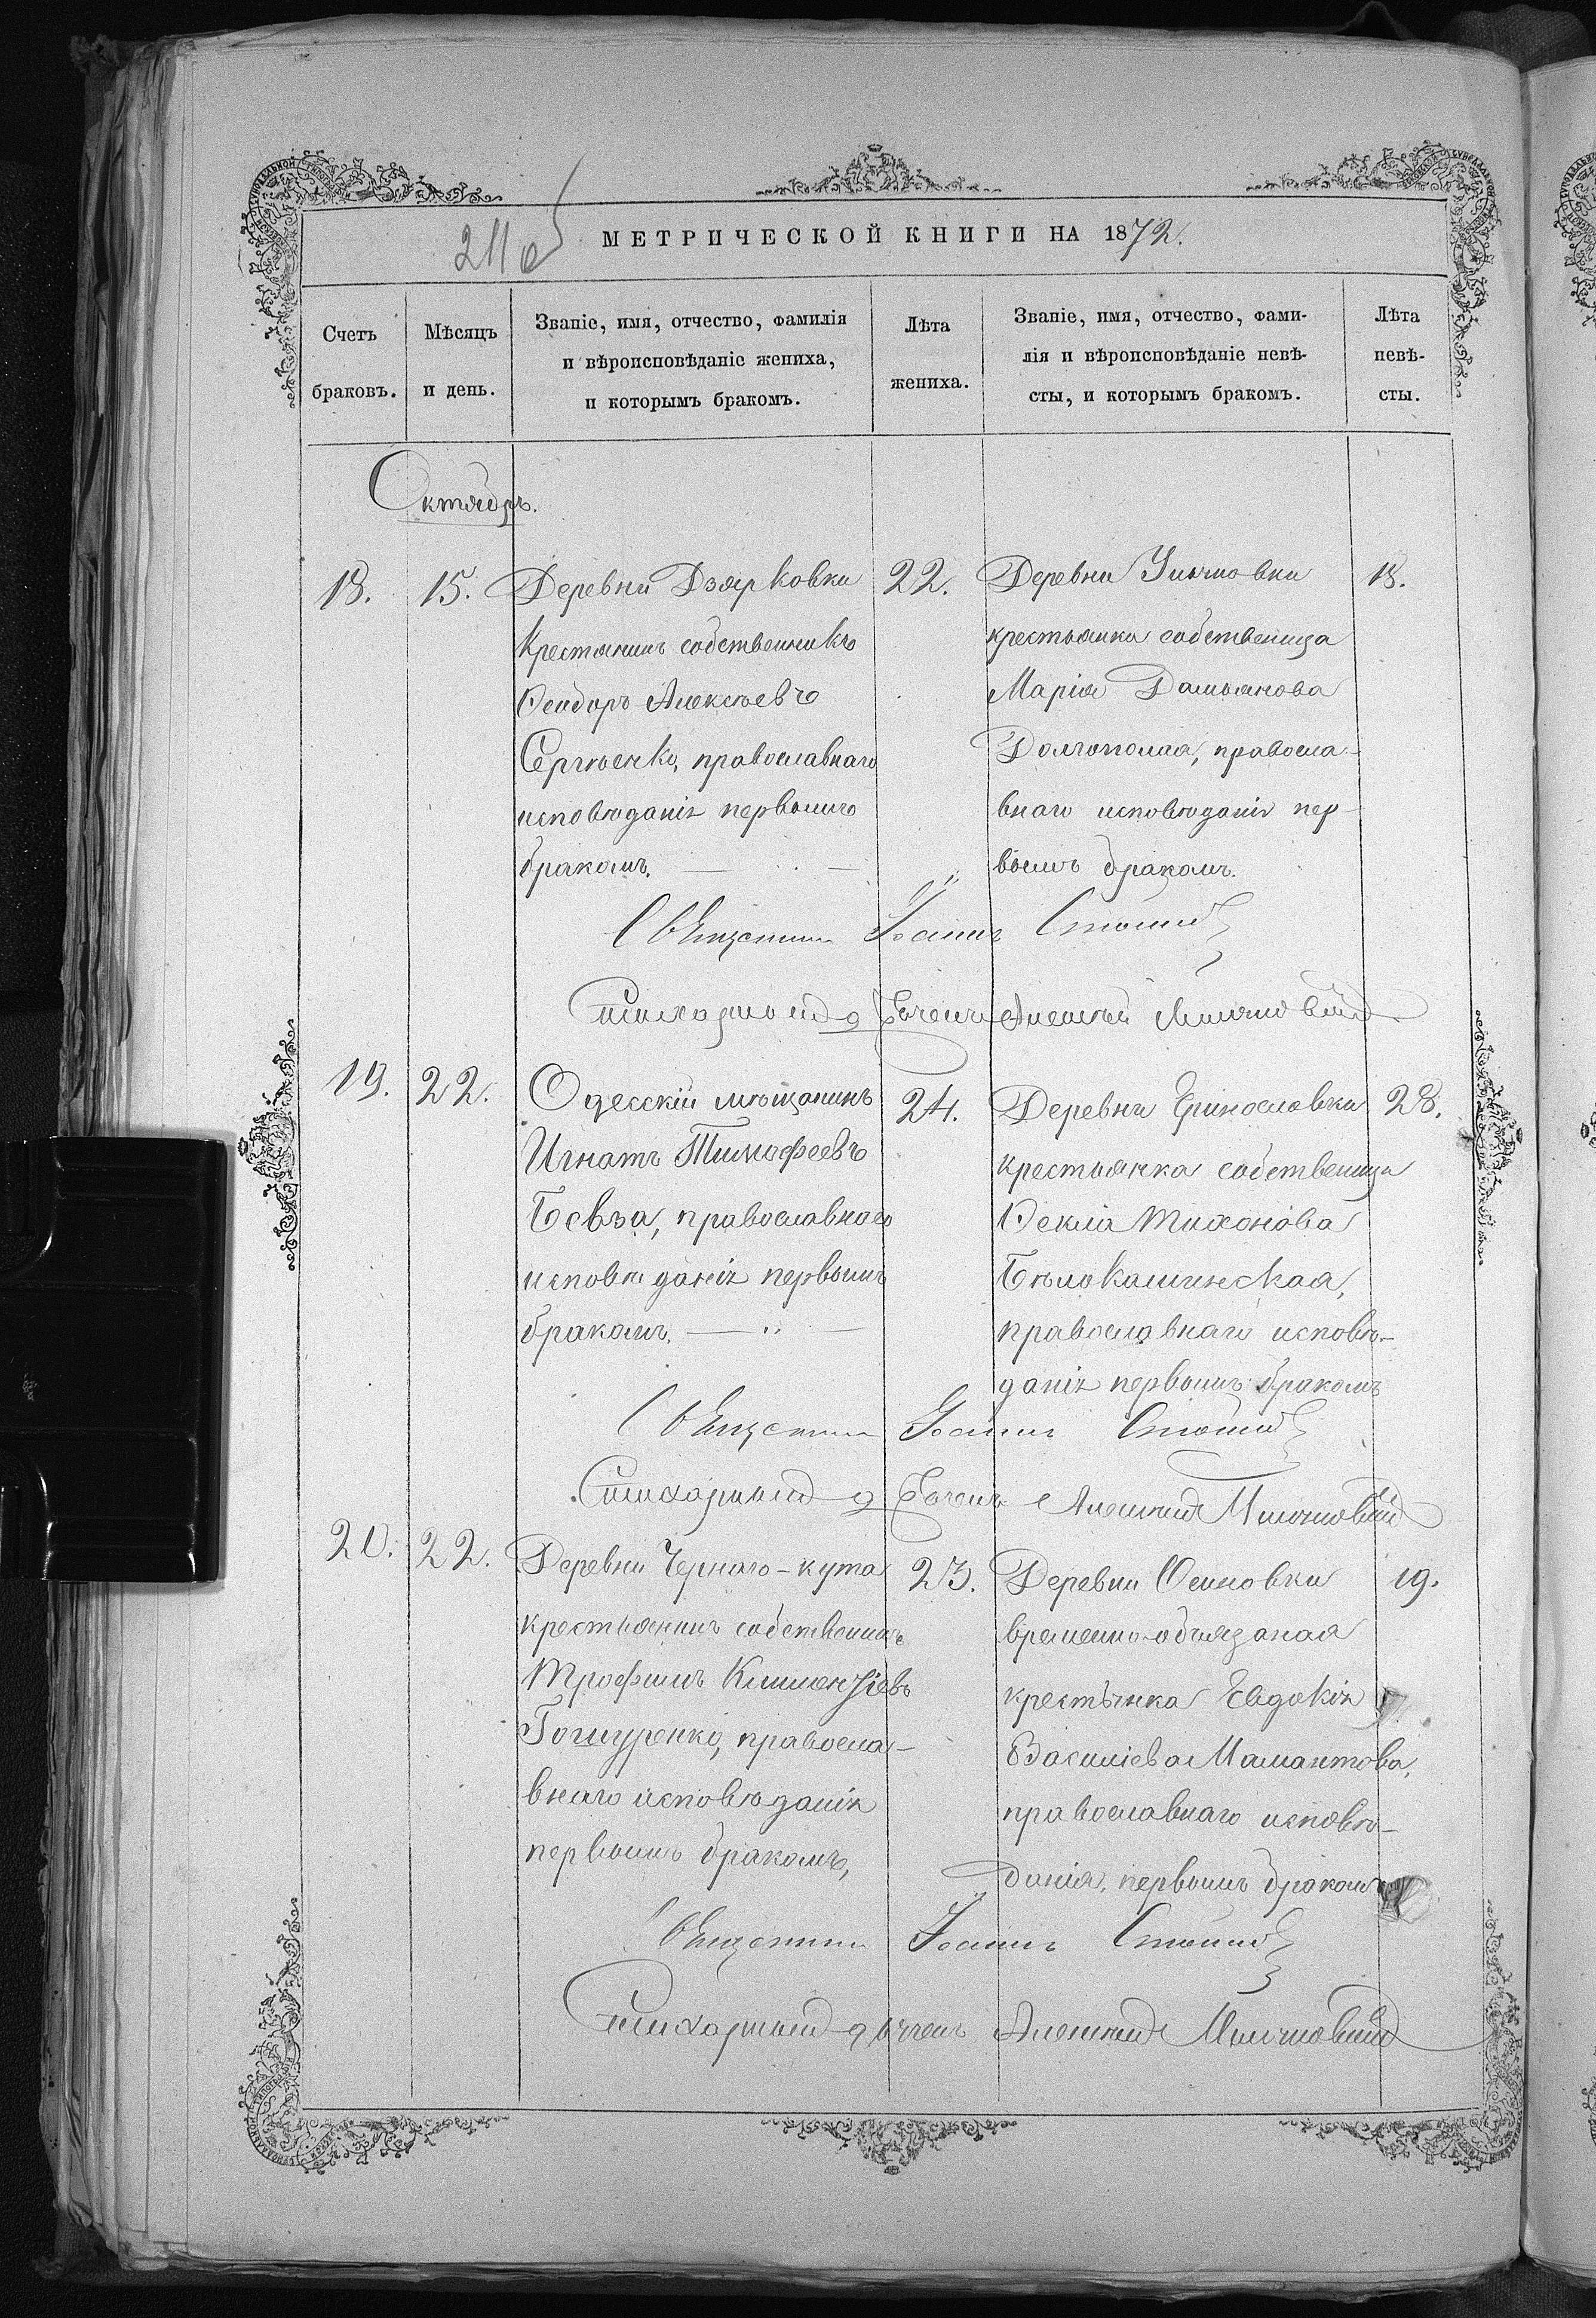 МЕТРИЧЕСКОЙ КНИГИ НА 1872.
Счетъ браковъ.
Мѣсяцъ и день.
Званіе, имя, отчество, фамилія
и вѣроисповѣданіе жениха,
и которымъ бракомъ.
Лѣта жениха.
Званіе, имя, отчество, фами-
лія и вѣроисповѣданіе невѣ-
сты, и которымъ бракомъ.
Лѣта невѣ-
сты.
Октябрь.
18. 15.
Деревни
крестьянинъ собственникъ
Ѳеодоръ Алексѣевъ
Сергѣенко, православнаго
исповѣданія первымъ
бракомъ.
22.
Деревни
крестьянка собственица
Марія Дамьянова
Долгополая, правосла-
внаго исповѣданія пер-
вымъ бракомъ.
18.
Священникъ Іоаннъ
Стихарный дьячекъ Алексѣй
19. 22.
Одесскій мѣщанинъ
Игнатъ Тимофеевъ
Бевза, православнаго
исповѣданія первымъ
бракомъ.
24.
Деревни
крестьянка собственица
Ѳекла Тихонова
Бѣлокаминская,
православнаго исповѣ-
данія первымъ бракомъ
28.
Священникъ Іоаннъ
Стихарный дьячекъ Алексѣй
20. 22.
Деревни Чернаго-кута
крестьянинъ собственникъ
Трофимъ Климентіевъ
правосла-
внаго исповѣданія
первымъ бракомъ,
23.
Деревни Осиновки
временно-обязаная
крестьянка Евдокія
Василіева Мамантова,
православнаго исповѣ-
данія, первымъ бракомъ
19.
Священникъ Іоаннъ
Стихарный дьячекъ Алексѣй